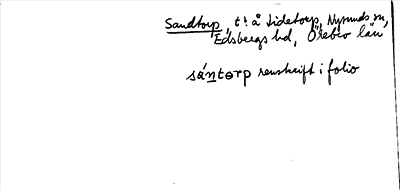 Sandtorp, t. å Lidetorp, Nysunds sn,
Edsbergs hd, Örebro län
sántɵrp renskrift i folio